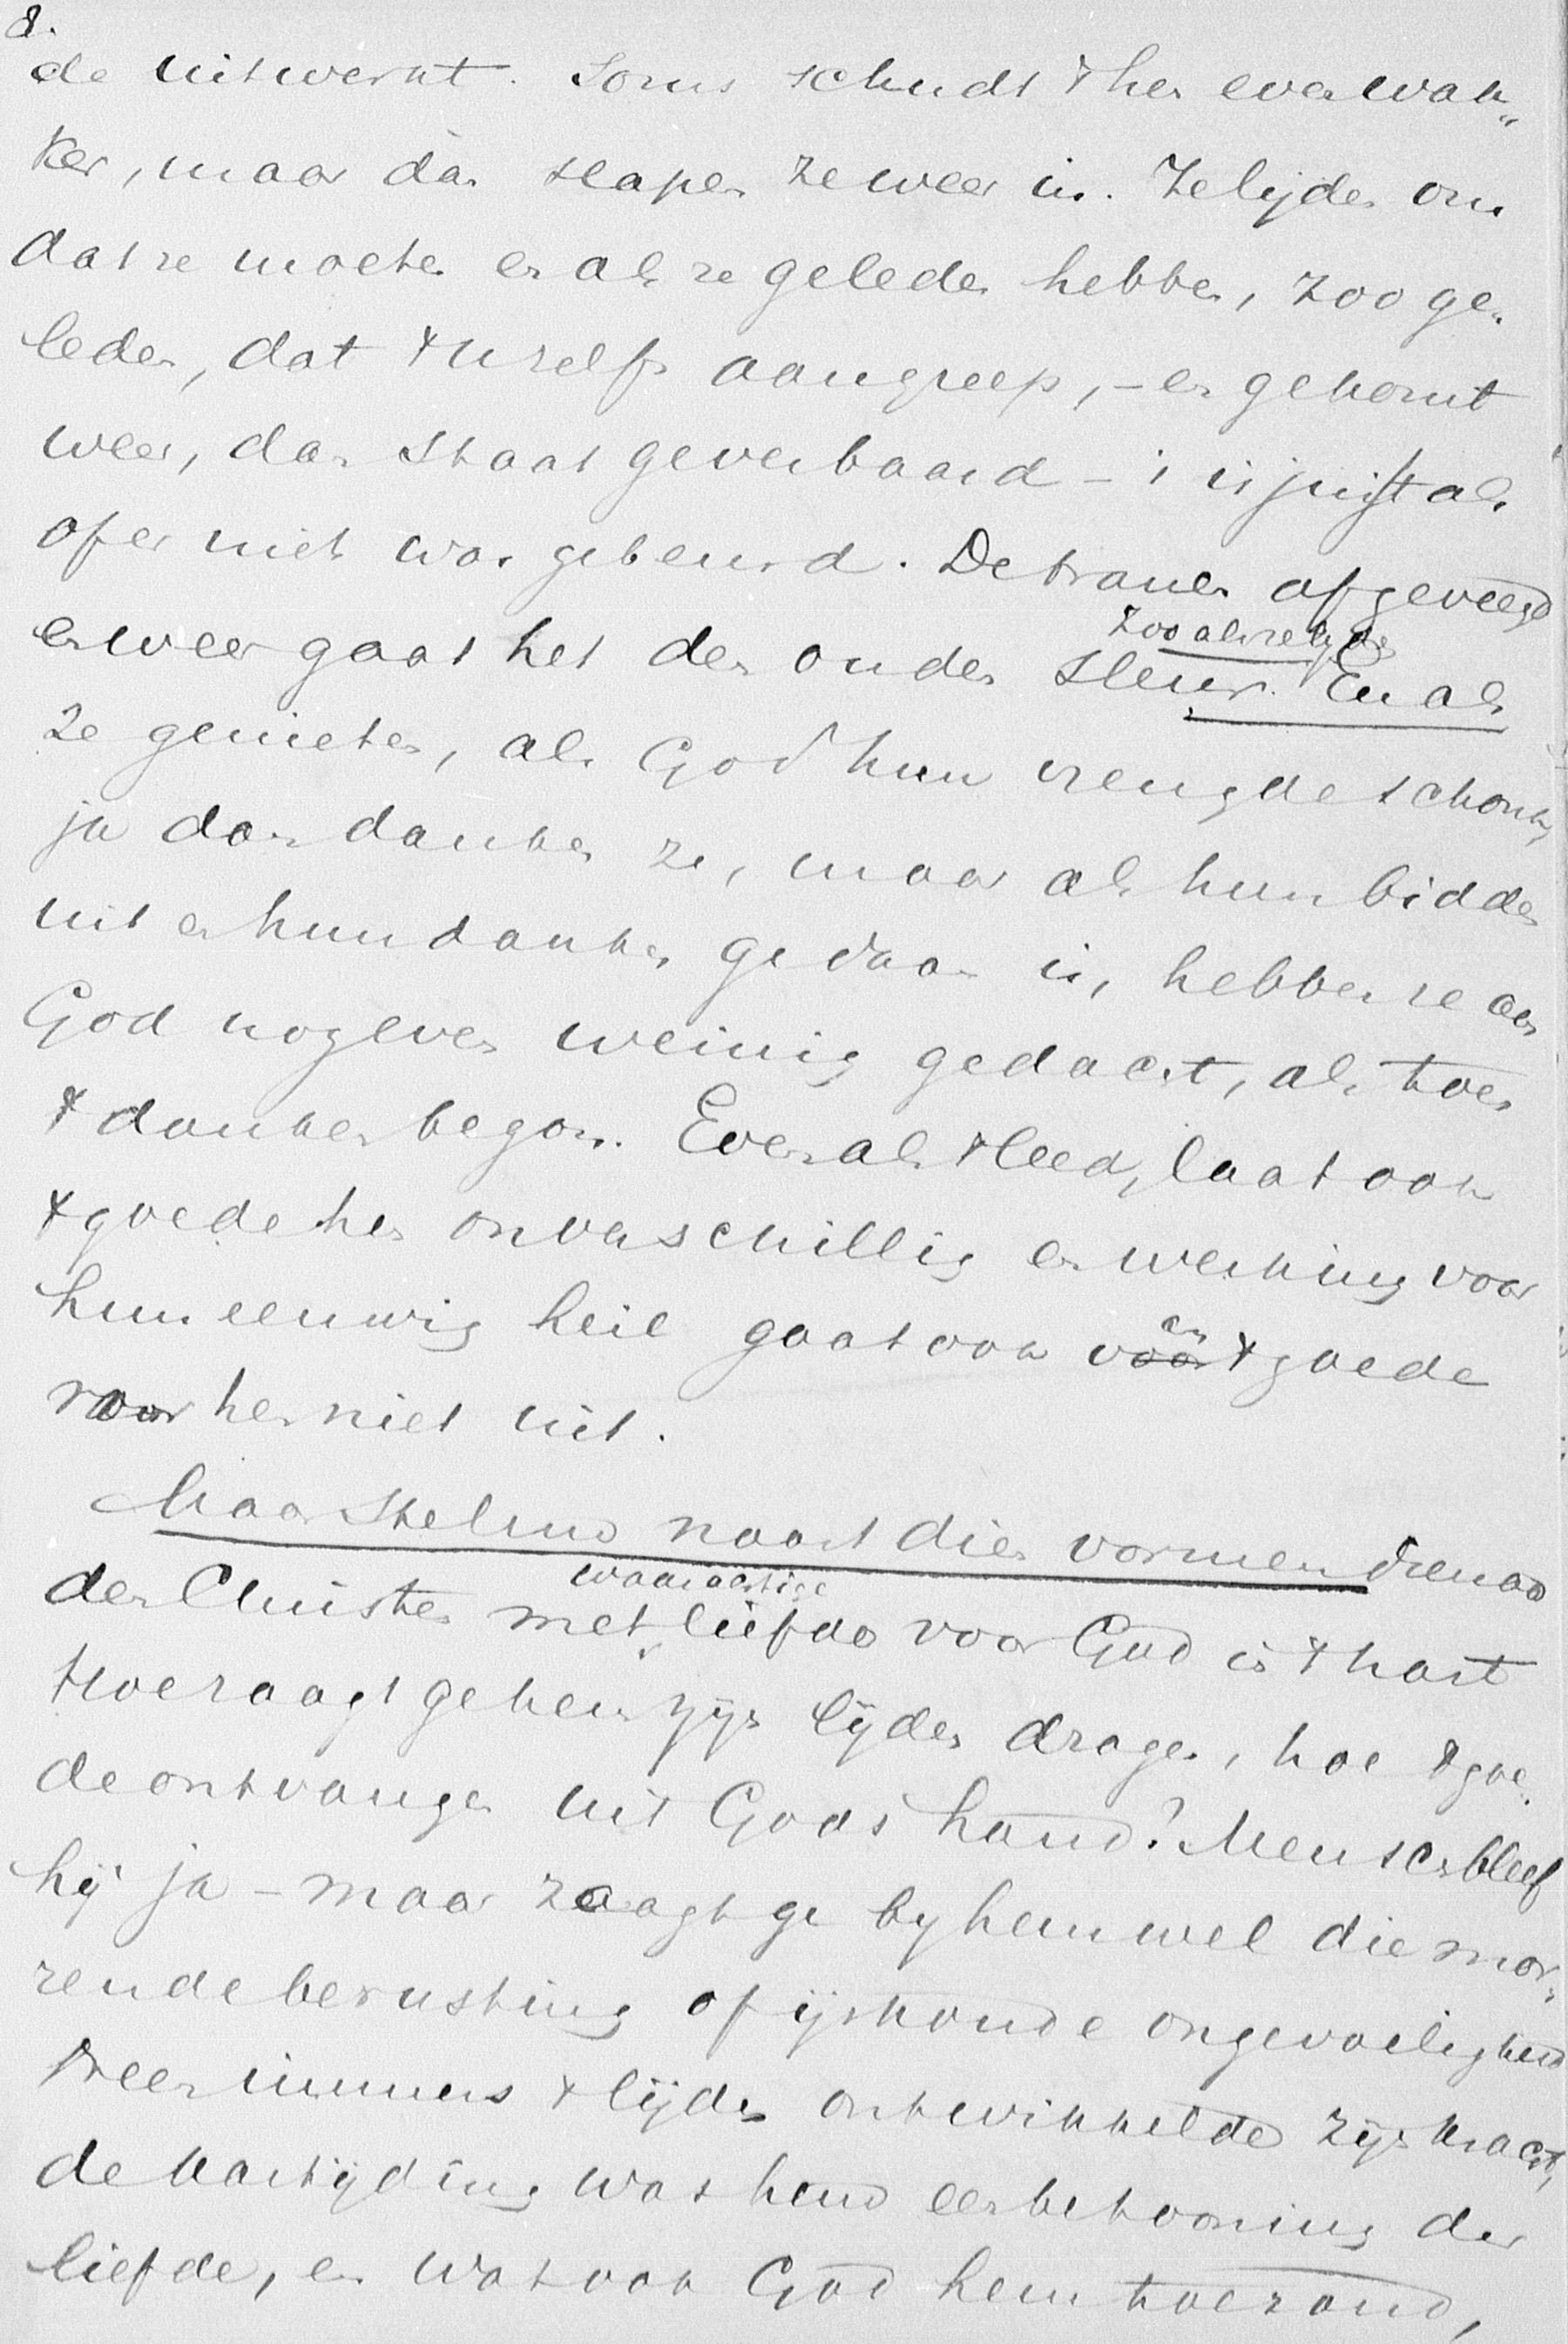 8.
de uitwerkt. Soms schudt 't hen even wak„
ker, maar dan slapen ze weer in. Ze lijden om
dat ze moeten en als ze geleden hebben, zoo ge„
leden, dat 't u zelfs aangreep, – en ge komt
weer, dan staat ge verbaasd – 't is juist als
of er niets was gebeurd. De tranen afgeveegd
en weer gaat het den ouden sleur. En als
zooals ze lijden
ze genieten, als God hun vreugde schonk,
ja dan danken ze, maar als hun bidden
uit en hun danken gedaan is, hebben ze aan
God nog even weinig gedacht, als toen
't danken begon. Even als 't leed, laat ook
't goede hen onverschillig en werking voor
hun eeuwig heil gaat ook voor 't goede
en
voor hen niet uit.
Maar stel nu naast die vormendienaar
den Christen met liefde voor God in 't hart
waarachtige
Hoe zaagt ge hem zijn lijden dragen, hoe 't goe„
de ontvangen uit Gods hand? Mensch bleef
hij ja – maar zaagt ge bij hem wel die mor„
rende berusting of ijskoude ongevoeligheid
Neen immers 't lijden ontwikkelde zijn kracht,
de kastijding was hem een betooning der
liefde, en wat ook God hem toezond,